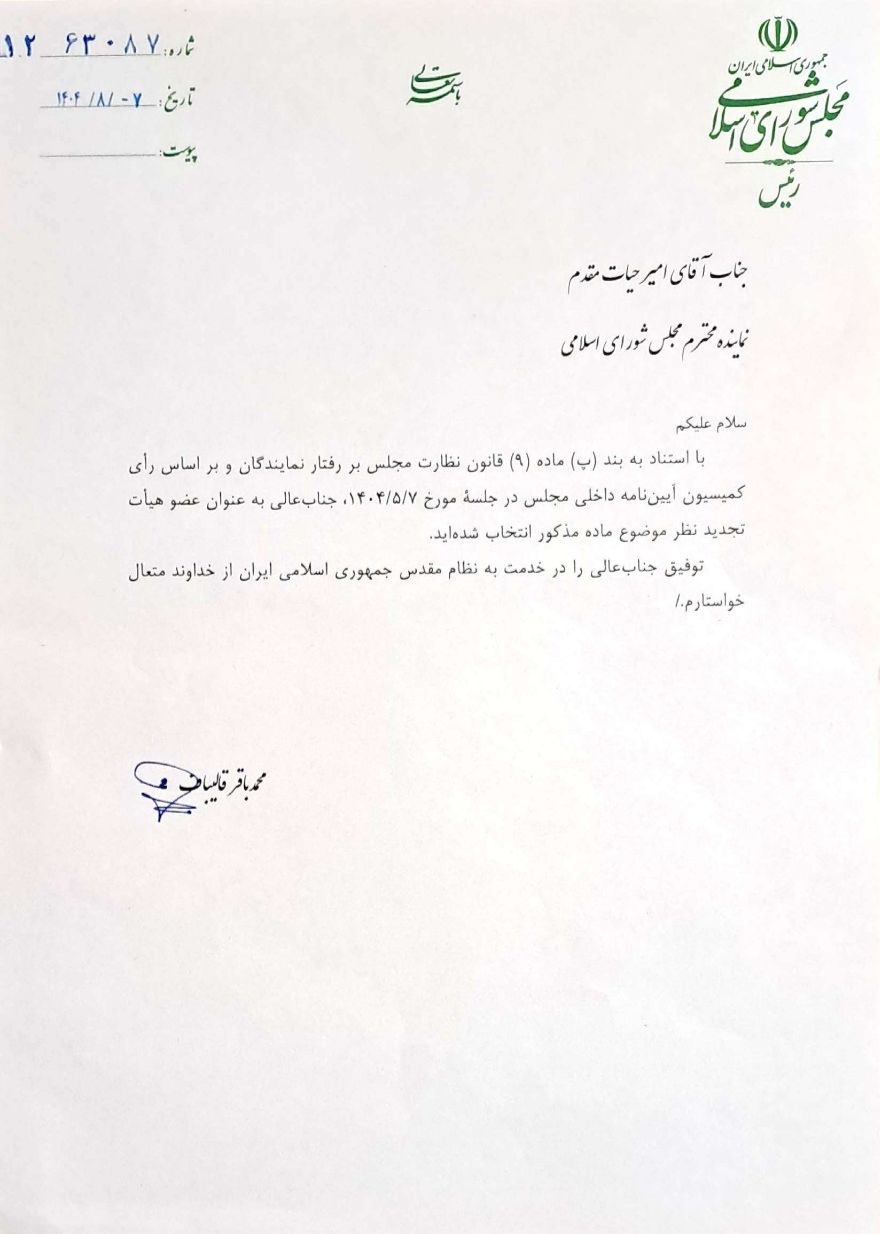 جمهوری اسلامی ایران
مجلس شورای اسلامی
رئیس
باسمه تعالی
شماره: ۱۲ ۶۳۰۸۷
تاریخ: ۱۴۰۴/۸/۰۷
پیوست:
جناب آقای امیر حیات مقدم
نماینده محترم مجلس شورای اسلامی
سلام علیکم
با استناد به بند (پ) ماده (۹) قانون نظارت مجلس بر رفتار نمایندگان و بر اساس رأی
کمیسیون آیین‌نامه داخلی مجلس در جلسهٔ مورخ ۱۴۰۴/۵/۷، جناب‌عالی به عنوان عضو هیأت
تجدید نظر موضوع ماده مذکور انتخاب شده‌اید.
توفیق جناب‌عالی را در خدمت به نظام مقدس جمهوری اسلامی ایران از خداوند متعال
خواستارم./
محمدباقر قالیباف